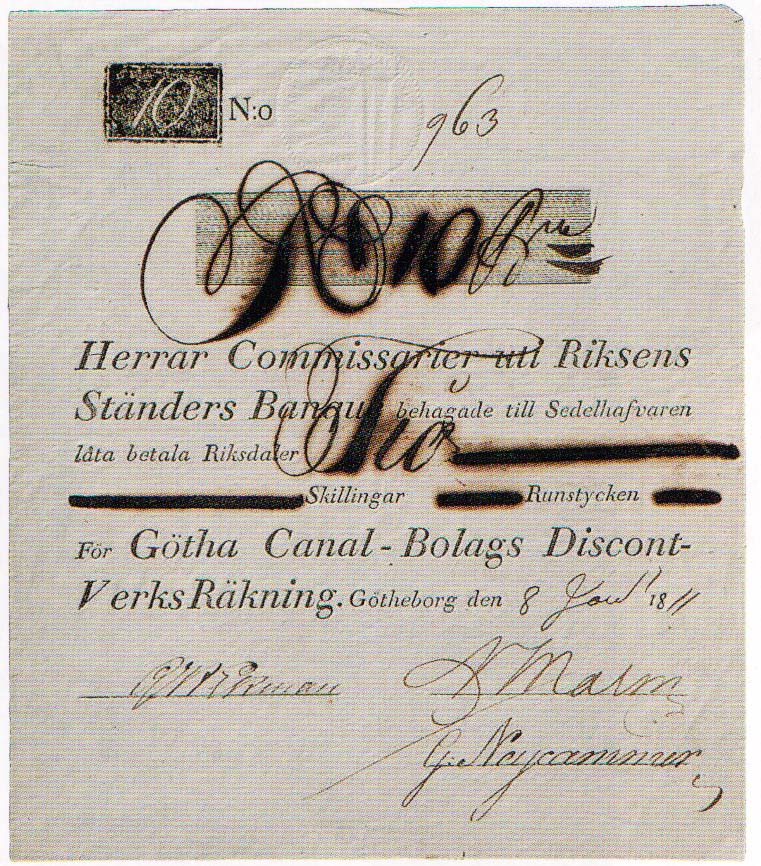 10 N:o 963
Rd 10
Herrar Commissarier utl Riksens
Ständers Banque behagade till Sedelhafvaren
låta betala Riksdaler Tio
Skillingar Runstycken
För Götha Canal-Bolags Discont-
Verks Räkning. Götheborg den 8 1811
A Malm